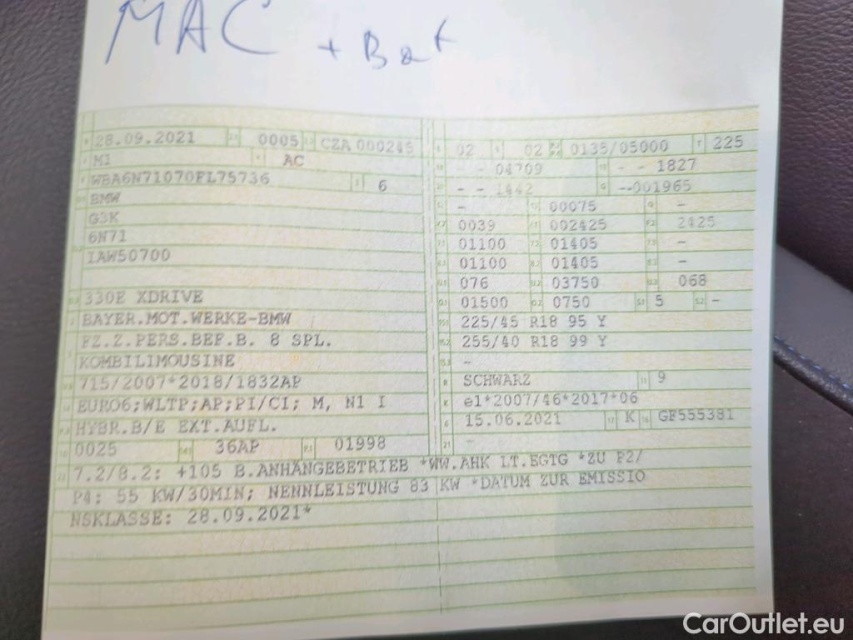 MAC + Bat
28.09.2021 0005 CZA 000245 02 02 0135/05000 225
M1 AC - - 04709 - - 1827
WBA6N71070FL75736 6 - - 1442 --001965
BMW - 00075 -
G3K 0039 002425 2425
6N71 01100 01405 -
1AW50700 01100 01405 -
076 03750 068
330E XDRIVE 01500 0750 5 -
BAYER.MOT.WERKE-BMW 225/45 R18 95 Y
FZ.Z.PERS.BEF.B. 8 SPL. 255/40 R18 99 Y
KOMBILIMOUSINE -
715/2007*2018/1832AP SCHWARZ 9
EURO6;WLTP;AP;PI/CI; M, N1 I e1*2007/46*2017*06
HYBR.B/E EXT.AUFL. 15.06.2021 K GF555381
0025 36AP 01998 -
7.2/8.2: +105 B.ANHÄNGEBETRIEB *WW.AHK LT.EGTG *ZU P2/
P4: 55 KW/30MIN; NENNLEISTUNG 83 KW *DATUM ZUR EMISSIO
NSKLASSE: 28.09.2021*
CarOutlet.eu